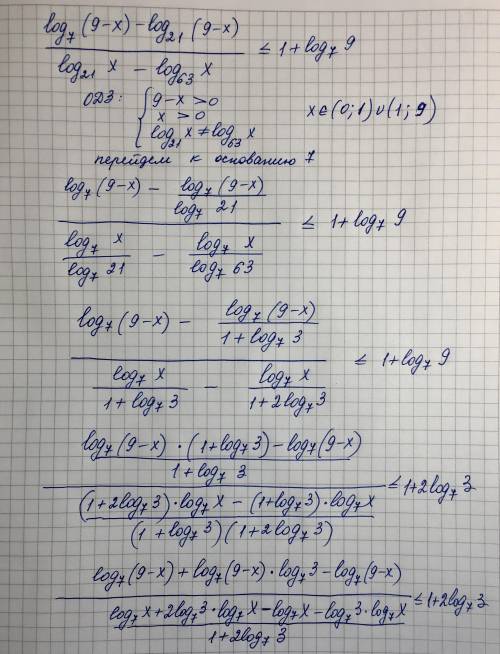 (log₇(9-x) - log₂₁(9-x)) / (log₂₁ x - log₆₃ x) ≤ 1 + log₇ 9
ОДЗ: { 9-x > 0
x > 0
log₂₁ x ≠ log₆₃ x
x ∈ (0; 1) ∪ (1; 9)
перейдем к основанию 7
(log₇(9-x) - log₇(9-x) / log₇ 21) / (log₇ x / log₇ 21 - log₇ x / log₇ 63) ≤ 1 + log₇ 9
(log₇(9-x) - log₇(9-x) / (1 + log₇ 3)) / (log₇ x / (1 + log₇ 3) - log₇ x / (1 + 2log₇ 3)) ≤ 1 + log₇ 9
((log₇(9-x) · (1 + log₇ 3) - log₇(9-x)) / (1 + log₇ 3)) / (((1 + 2log₇ 3) · log₇ x - (1 + log₇ 3) · log₇ x) / ((1 + log₇ 3)(1 + 2log₇ 3))) ≤ 1 + 2log₇ 3
(log₇(9-x) + log₇(9-x) · log₇ 3 - log₇(9-x)) / ((log₇ x + 2log₇ 3 · log₇ x - log₇ x - log₇ 3 · log₇ x) / (1 + 2log₇ 3)) ≤ 1 + 2log₇ 3